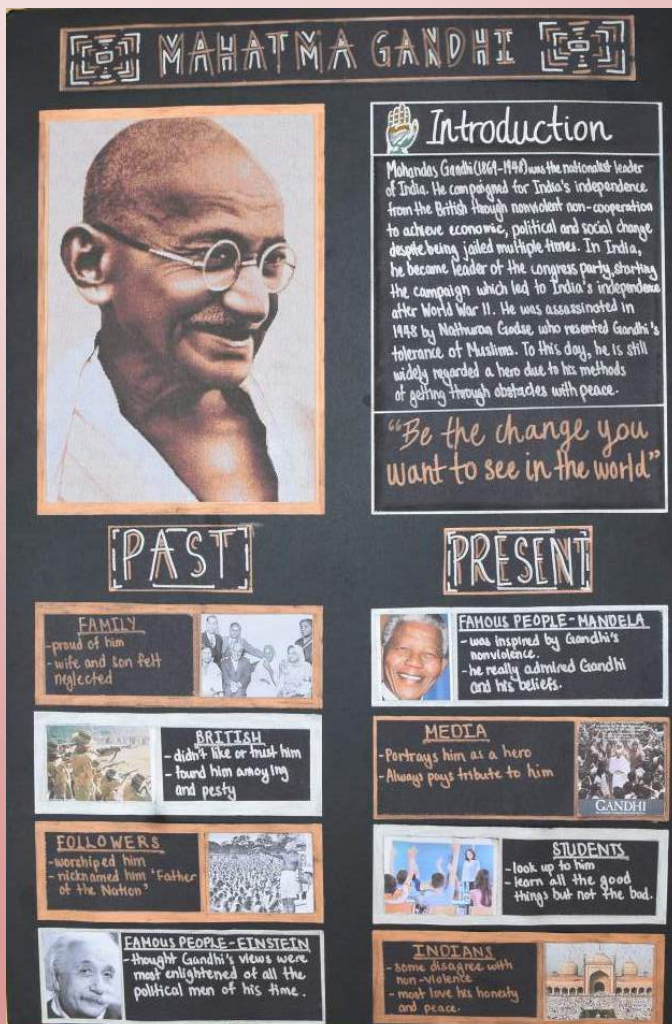 MAHATMA GANDHI
Introduction
Mohandas Gandhi (1869-1948) was the nationalist leader
of India. He campaigned for India's independence
from the British through nonviolent non-cooperation
to achieve economic, political and social change
despite being jailed multiple times. In India,
he became leader of the congress party, starting
the campaign which led to India's independence
after World War II. He was assassinated in
1948 by Nathuran Godse who resented Gandhi's
tolerance of Muslims. To this day, he is still
widely regarded a hero due to his methods
of getting through obstacles with peace.
"Be the change you
want to see in the world"
PAST
FAMILY
-proud of him
-wife and son felt
neglected
BRITISH
-didn't like or trust him
-found him annoying
and pesty
FOLLOWERS
-worshiped him
-nicknamed him 'Father
of the Nation'
FAMOUS PEOPLE-EINSTEIN
-thought Gandhi's views were
most enlightened of all the
political men of his time.
PRESENT
FAMOUS PEOPLE-MANDELA
-was inspired by Gandhi's
nonviolence.
-he really admired Gandhi
and his beliefs.
MEDIA
-Portrays him as a hero
-Always pays tribute to him
GANDHI
STUDENTS
-look up to him
-learn all the good
things but not the bad.
INDIANS
-some disagree with
non-violence
-most love his honesty
and peace.